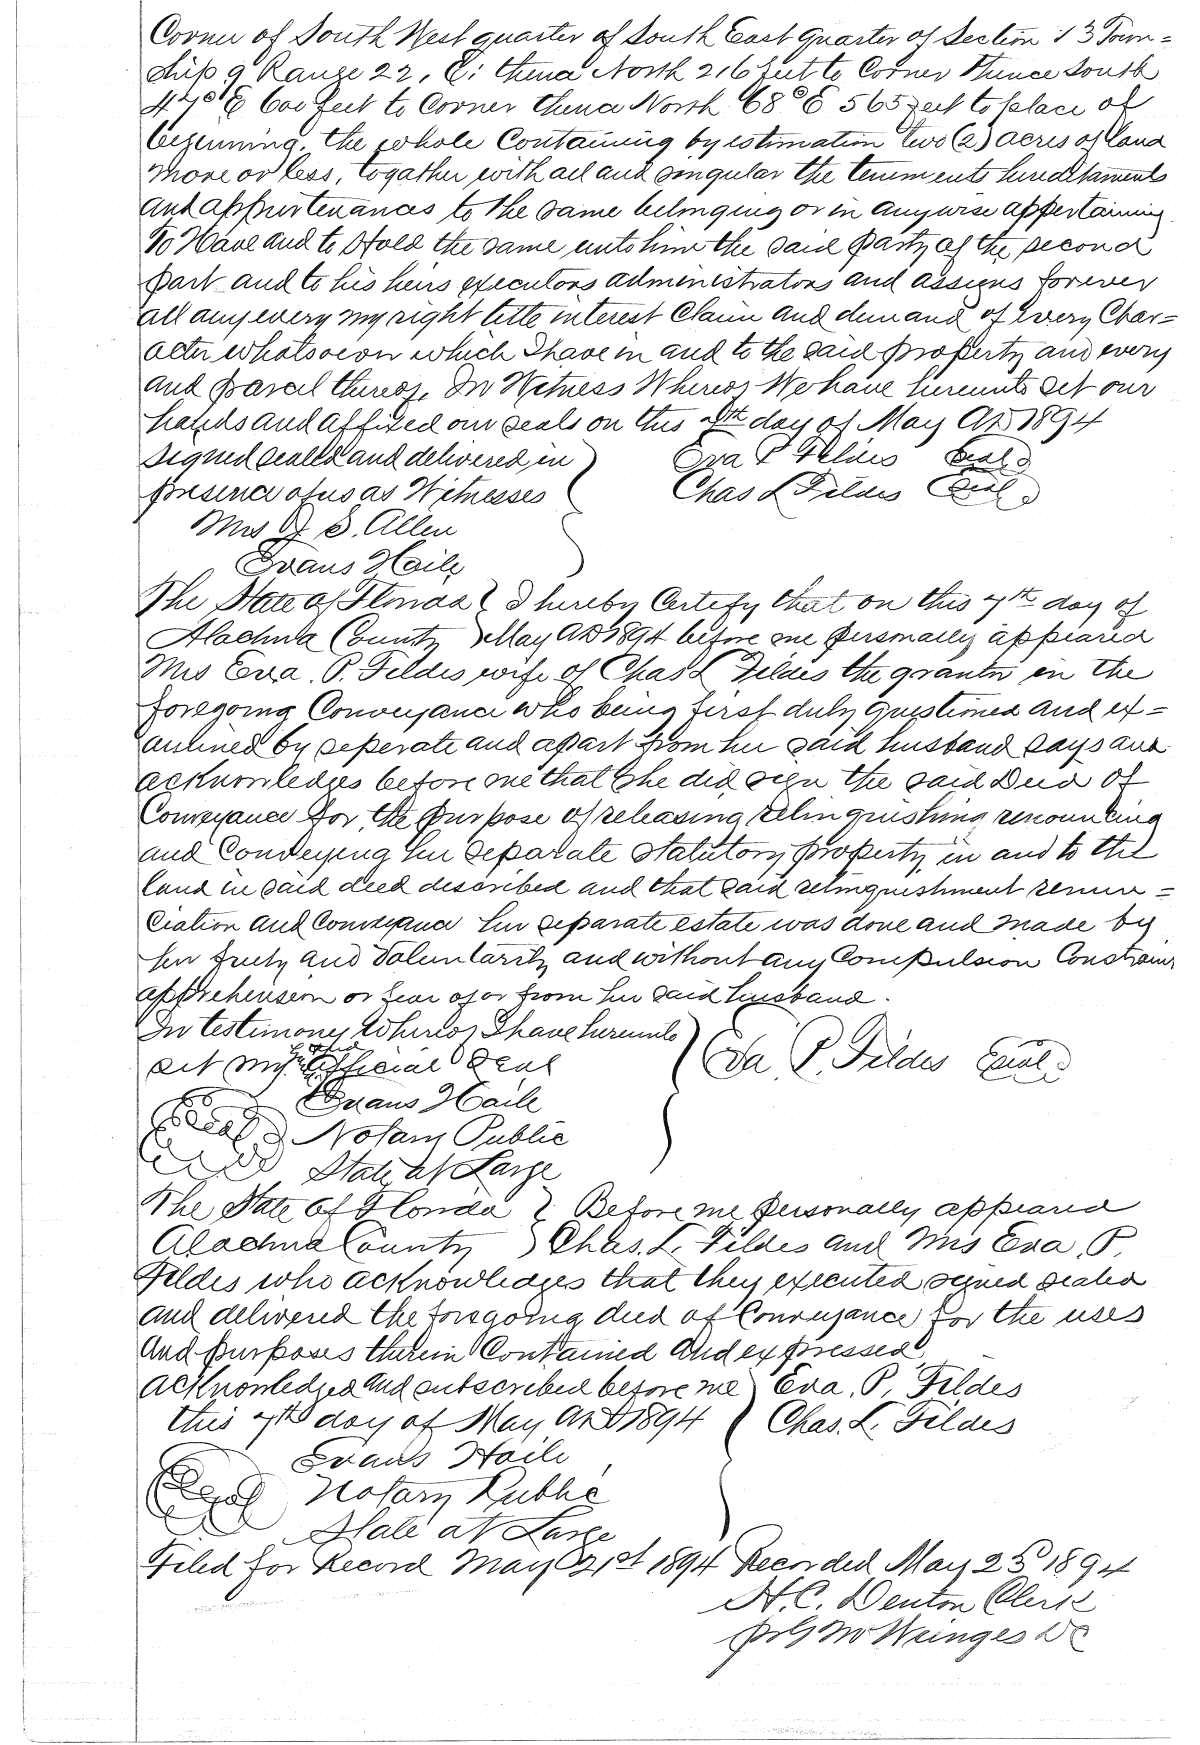 Corner of South West quarter of South East Quarter of Section 13 Town=
ship 9 Range 22, E: thence North 216 feet to Corner thence South
47° E 600 feet to Corner thence North 68° E 565 feet to place of
beginning. the whole Containing by estimation two (2) acres of land
more or less, togather with all and singular the tenements hereditaments
and appurtenances to the same belinging or in anywise appertaining
To Have and to Hold the same unto him the said Party of the second
part and to his heirs executors administrators and assigns forever
all any every my right title interest Claim and demand of every Char=
acter whatsoever which I have in and to the said property and every
and parcel thereof. In Witness Whereof We have hereunto set our
hands and affixed our seals on this 7th day of May AD 1894
Signed sealed and delivered in } Eva P Fildes Seal
presence of us as Witnesses Chas L Fildes Seal
Mrs J S. Allen
Evans Haile
The State of Florida } I hereby Certify that on this 7th day of
Alachua County } May AD 1894 before me personally appeared
Mrs Eva. P. Fildes wife of Chas L Fildes the grantor in the
foregoing Conveyance who being first duly questioned and ex=
amined by seperate and apart from her said husband says and
acknowledges before me that she did sign the said Deed of
Conveyance for the purpose of releasing relinquishing renouncing
and Conveying her separate statutory property in and to the
land in said deed described and that said relinquishment renun=
ciation and Conveyance her separate estate was done and made by
her freely and Voluntarily and without any Compulsion Constraint
apprehension or fear of or from her said husband.
In testimony Whereof I have hereunto
set my official Seal } Eva P. Fildes Seal
Evans Haile
Seal Notary Public
State at Large
The State of Florida } Before me personally appeared
Alachua County } Chas. L. Fildes and Mrs Eva. P.
Fildes who acknowledges that they executed signed sealed
and delivered the foregoing deed of Conveyance for the uses
and purposes therein Contained and expressed
acknowledged and subscribed before me } Eva. P. Fildes
this 7th day of May AD 1894 Chas. L. Fildes
Evans Haile
Seal Notary Public
State at Large
Filed for Record May 21st 1894 Recorded May 25 1894
H. C. Denton Clerk
DC